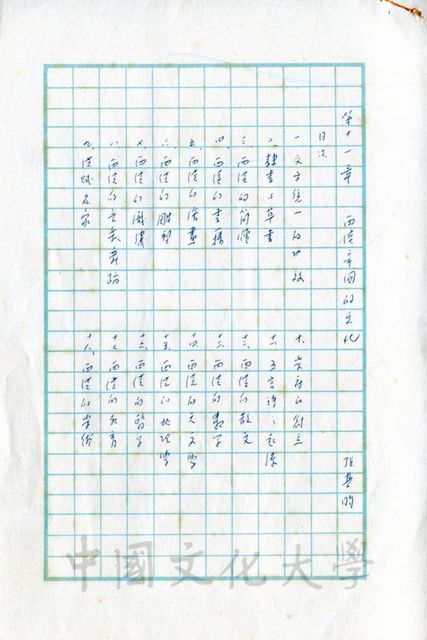 第十一章 西漢帝國的文化 張其昀
目次
一 文字統一的功效
二 隸書與草書
三 西漢的簡牘
四 西漢的書籍
五 西漢的漆畫
六 西漢的雕塑
七 西漢的
八 西漢的音樂舞蹈
九 漢賦名家
十 樂府的創立
十一 五言詩之起源
十二 西漢的散文
十三 西漢的數學
十四 西漢的天文學
十五 西漢的地理學
十六 西漢的醫學
十七 西漢的教育
十八 西漢的學術
中國文化大學